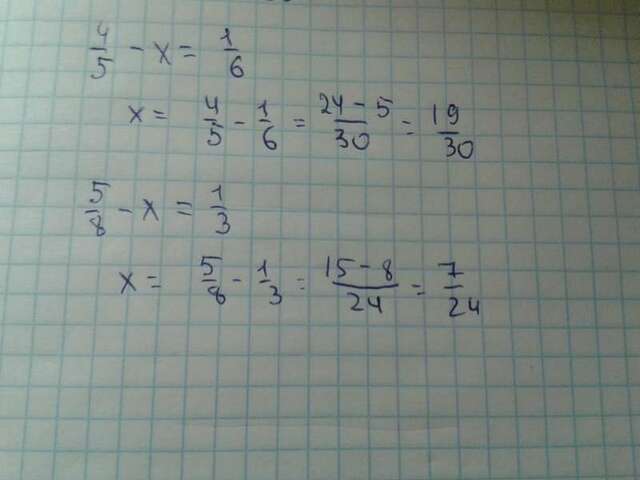 4/5 - x = 1/6
x = 4/5 - 1/6 = (24 - 5)/30 = 19/30
5/8 - x = 1/3
x = 5/8 - 1/3 = (15 - 8)/24 = 7/24